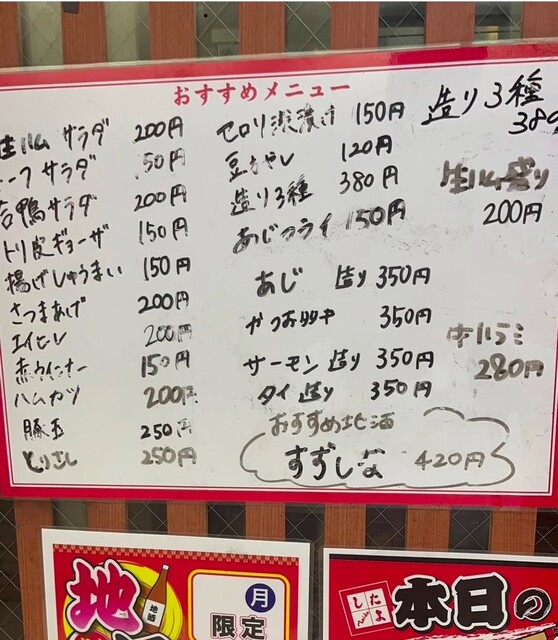 おすすめメニュー
生ハム サラダ 200円
ーフ サラダ 150円
合鴨サラダ 200円
トリ皮ギョーザ 150円
揚げしゅうまい 150円
さつまあげ 200円
エイヒレ 200円
赤ウインナー 150円
ハムカツ 200円
豚玉 250円
とりさし 250円
セロリ浅漬け 150円
豆もやし 120円
造り3種 380円
あじフライ 150円
あじ 造り 350円
かつおタタキ 350円
サーモン 造り 350円
タイ 造り 350円
おすすめ地酒
すずしな 420円
造り3種
380
生ハム盛り
200円
牛ハラミ
280円
地
地酒
月
限定
したよ
本日の